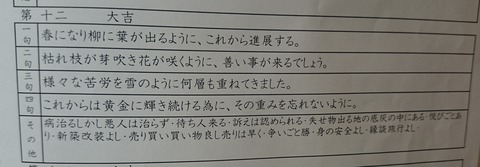 第十二 大吉
一句 春になり柳に葉が出るように、これから進展する。
二句 枯れ枝が芽吹き花が咲くように、善い事が来るでしょう。
三句 様々な苦労を雪のように何層も重ねてきました。
四句 これからは黄金に輝き続ける為に、その重みを忘れないように。
その他 病治るしかし悪人は治らず・待ち人来る・訴えは認められる・失せ物出る地の底灰の中にある・悦びごとあ
り・新築改装よし・売り買い買い物良し売りは早く・争いごと勝・身の安全よし・縁談旅行よし・